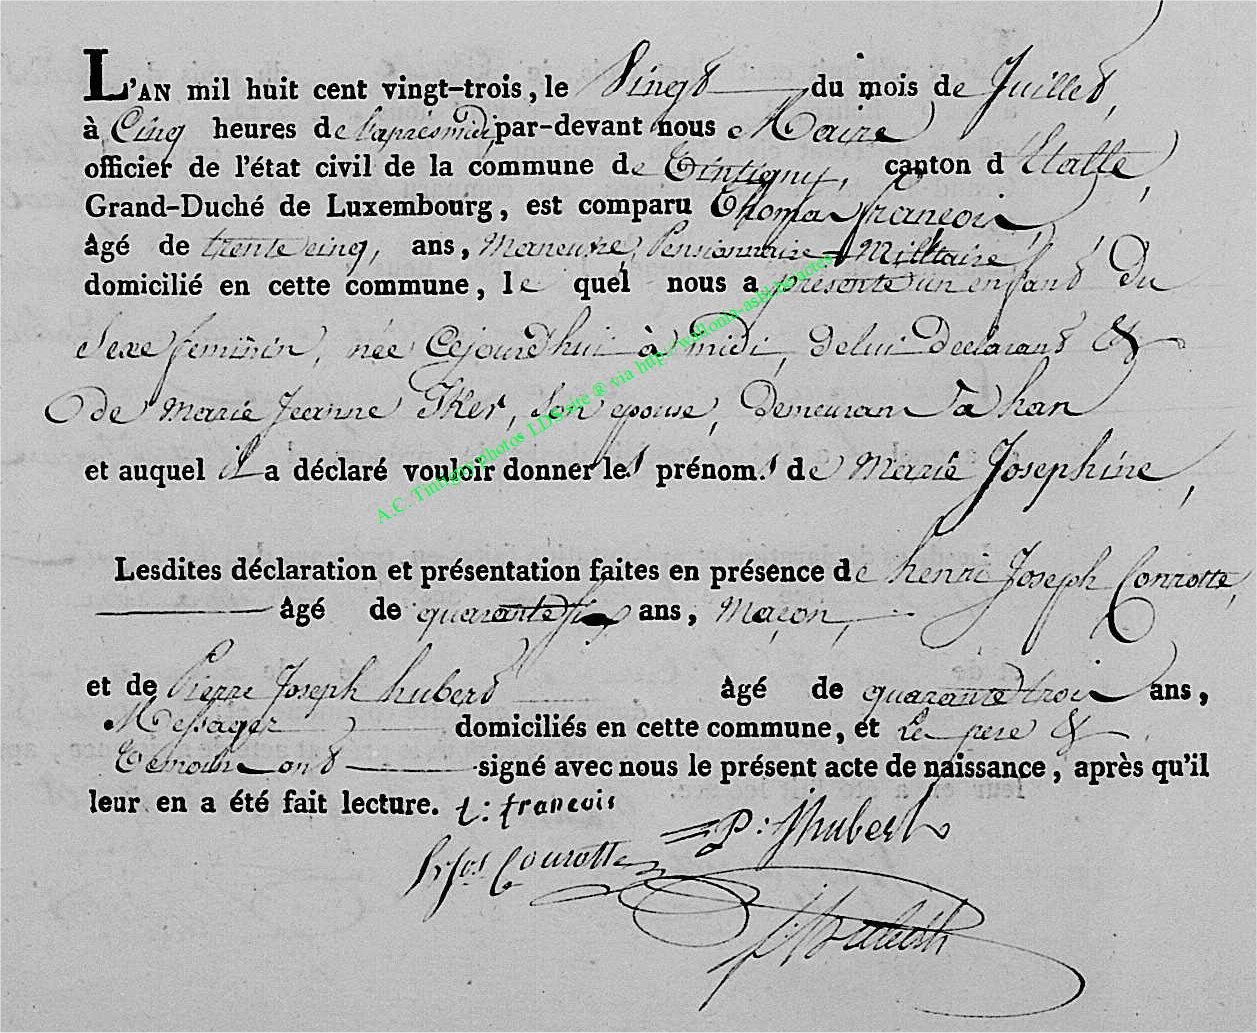 L'AN mil huit cent vingt-trois, le Vingt du mois de Juillet,
à Cinq heures de l'après midi, par-devant nous Maire
officier de l'état civil de la commune de Tintigny, canton d'Etalle,
Grand-Duché de Luxembourg, est comparu Thomas françois,
âgé de trente cinq, ans, Maneuvre, Pensionnaire Militaire,
domicilié en cette commune, le quel nous a présenté un enfant Du
Sexe feminin, née Cejourd'hui à midi, Delui Declarant &
de Marie Jeanne Iker, Son epouse, Demeurant a han
et auquel il a déclaré vouloir donner les prénoms de Marie Josephine,
Lesdites déclaration et présentation faites en présence de henri Joseph Conrotte,
âgé de quarante six ans, Maçon,
et de Pierre Joseph hubert âgé de quarante trois ans,
Messager domiciliés en cette commune, et Le pere &
Temoins ont signé avec nous le présent acte de naissance, après qu'il
leur en a été fait lecture. t: francois
P: J hubert
h. Jos. Conrotte
A.C. Tintigny photos LDS site ® via http://wallonia-asbl.be/actes